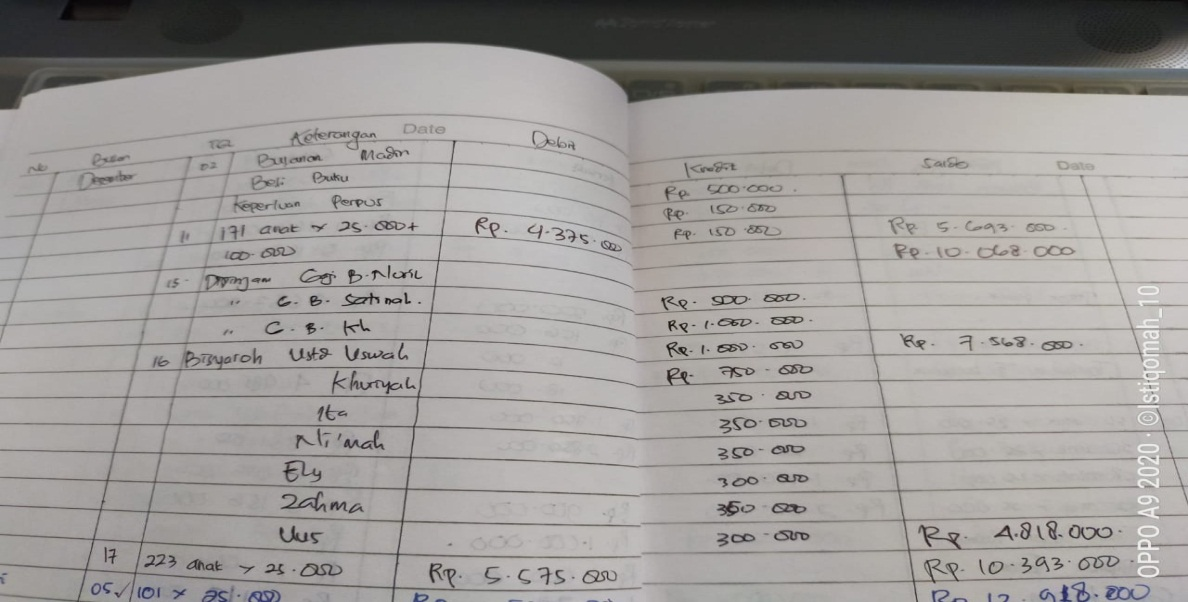 No Bulan Tgl Keterangan Date Debit Kredit Saldo Date
Desember 02 Bisyaroh Madin Rp. 500.000.
Beli Buku Rp. 150.000
Keperluan Perpus Rp. 150.000 Rp. 5.693.000.
11 171 anak x 25.000+ Rp. 4.375.000 Rp. 10.068.000
100.000
15. B. Nuril Rp. 500.000.
" G. B. Rp. 1.000.000.
" G. B. Kh Rp. 1.000.000 Rp. 7.568.000.
16 Bisyaroh Ustz Uswah Rp. 750.000
Khuriyah 350.000
Ita 350.000
Ni'mah 350.000
Ely 300.000
Zahma 350.000
Uus 300.000 Rp. 4.818.000.
17 223 anak x 25.000 Rp. 5.575.000 Rp. 10.393.000
05 101 x 25.000
OPPO A9 2020 · ©Istiqomah_10